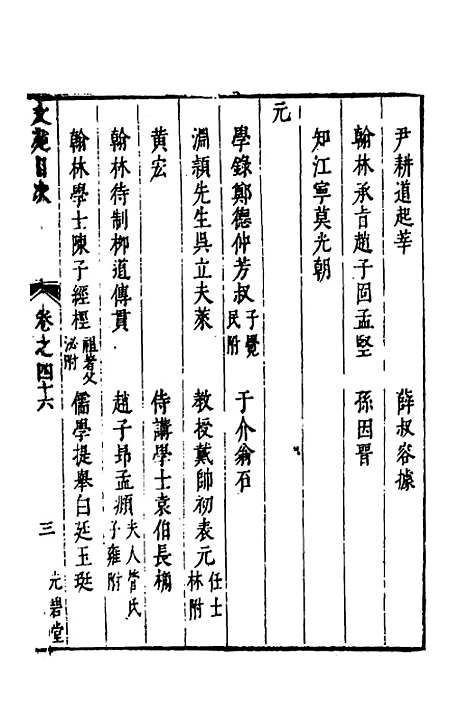 尹耕道起莘　薛叔容據
翰林承旨趙子固孟堅　孫因晋
知江寧莫光朝
元
學錄鄭德仲芳叔子覺民附　于介翁石
淵穎先生吳立夫萊　教授戴帥初表元任士林附
黃宏　侍講學士袁伯長桷
翰林待制柳道傳貫　趙子昻孟頫夫人管氏子雍附
翰林學士陳子經桱祖著父泌附　儒學提舉白廷玉珽
文苑目次　卷之四十六　三　光碧堂